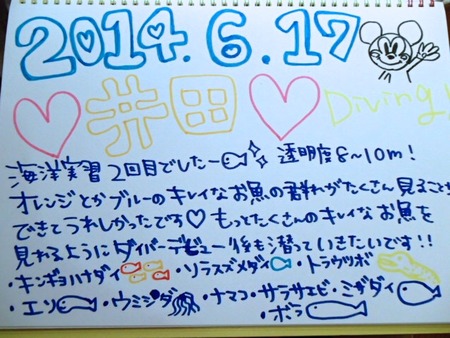 2014.6.17
井田 Diving!
海洋実習2回目でしたー 透明度8~10m!
オレンジとかブルーのキレイなお魚の群れがたくさん見ることが
できてうれしかったです♡ もっとたくさんのキレイなお魚を
見れるようにダイバーデビュー後も潜っていきたいです!!
・キンギョハナダイ ・ソラスズメダイ ・トラウツボ
・エソ ・ウミシダ ・ナマコ・サラサエビ・ミギダイ
・ボラ